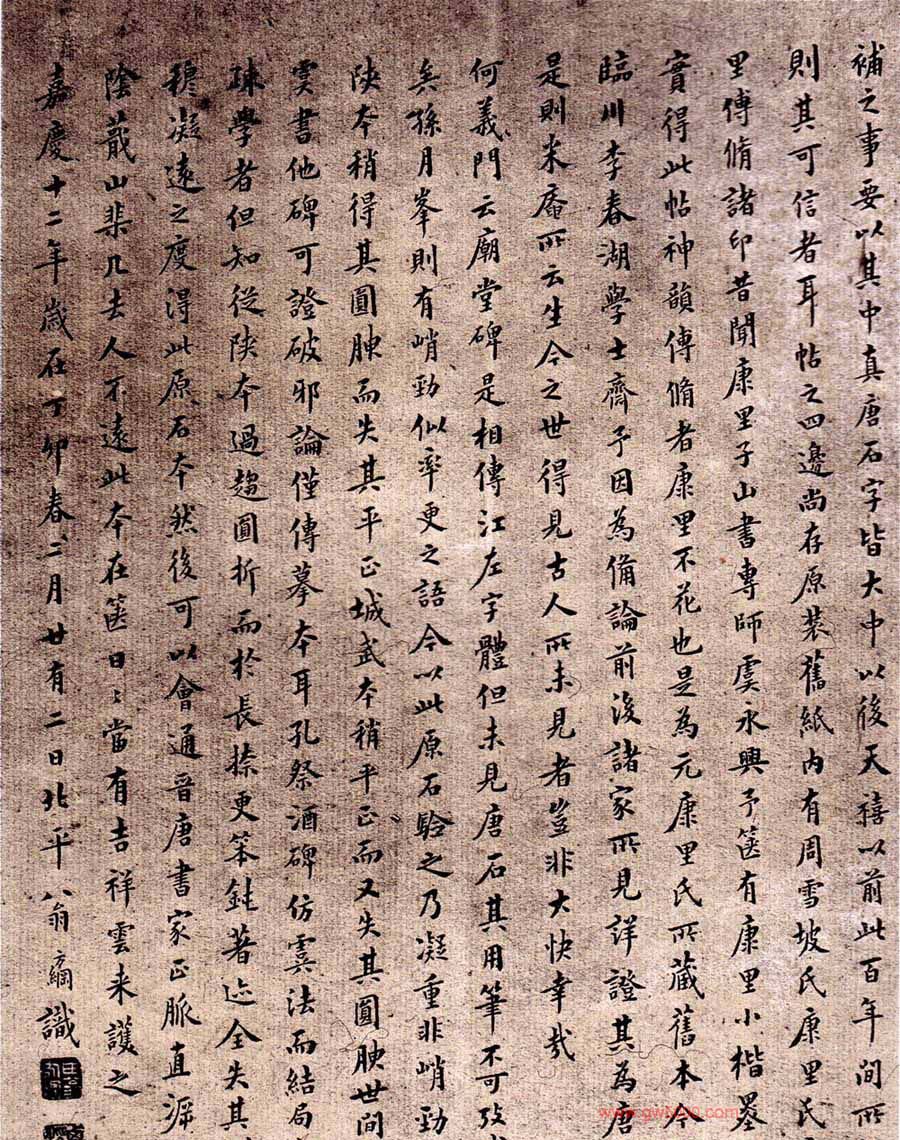 補之事要以其中真唐石字皆大中以後天禧以前此百年間所
則其可信者耳帖之四邊尚存原裝舊紙內有周雪坡氏康里氏
里傅脩諸印昔聞康里子山書專師虞永興予篋有康里小楷墨
實得此帖神韻傅脩者康里不花也是為元康里氏所藏舊本今
臨川李春湖學士齎予因為備論前後諸家所見詳證其為唐
是則米庵所云生今之世得見古人所未見者豈非大快幸哉
何義門云廟堂碑是相傳江左字體但未見唐石其用筆不可攷
矣孫月峯則有峭勁似率更之語今以此原石驗之乃凝重非峭勁
陝本稍得其圓腴而失其平正城武本稍平正而又失其圓腴世間
虞書他碑可證破邪論僅傳摹本耳孔祭酒碑仿虞法而結局
疎學者但知從陝本過趨圓折而於長捺更笨鈍著迹全失其
穆凝遠之度得此原石本然後可以會通晉唐書家正脈直溯
陰蕺山棐几去人不遠此本在篋日〻當有吉祥雲来護之
嘉慶十二年歲在丁卯春二月廿有二日北平翁方綱識